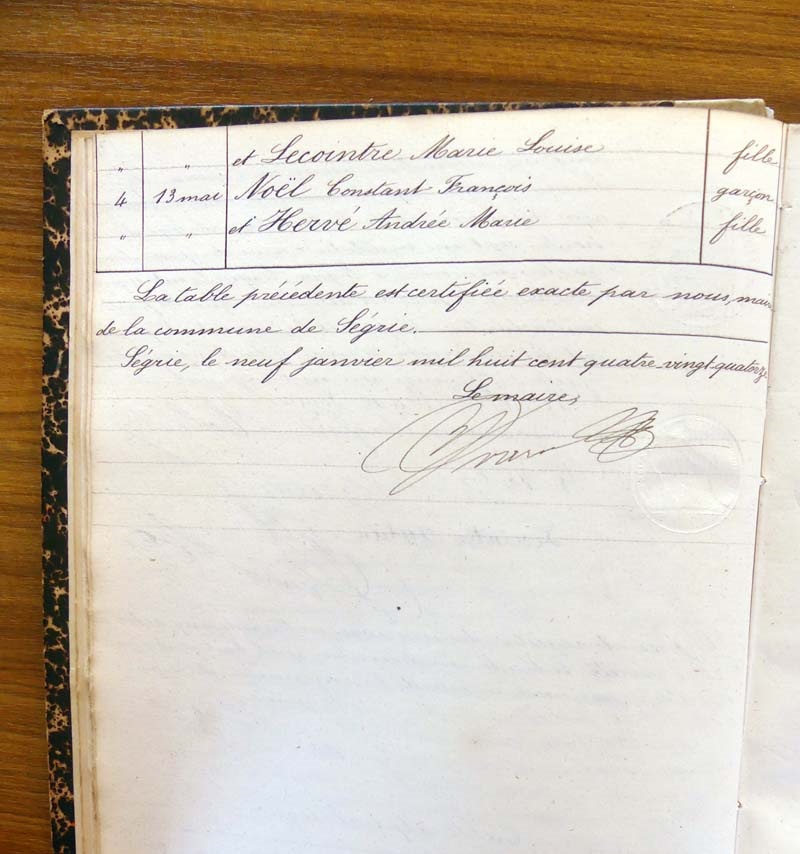 „ „ et Lecointre Marie Louise fille
4 13 mai Noël Constant François garçon
„ „ et Hervé Andrée Marie fille
La table précédente est certifiée exacte par nous, maire
de la commune de Ségrie.
Ségrie, le neuf janvier mil huit cent quatre-vingt-quatorze
Le maire,